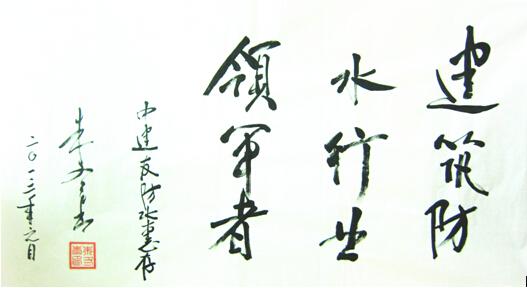 建筑防
水行业
領軍者
中建友防水惠存
二〇一三年元月